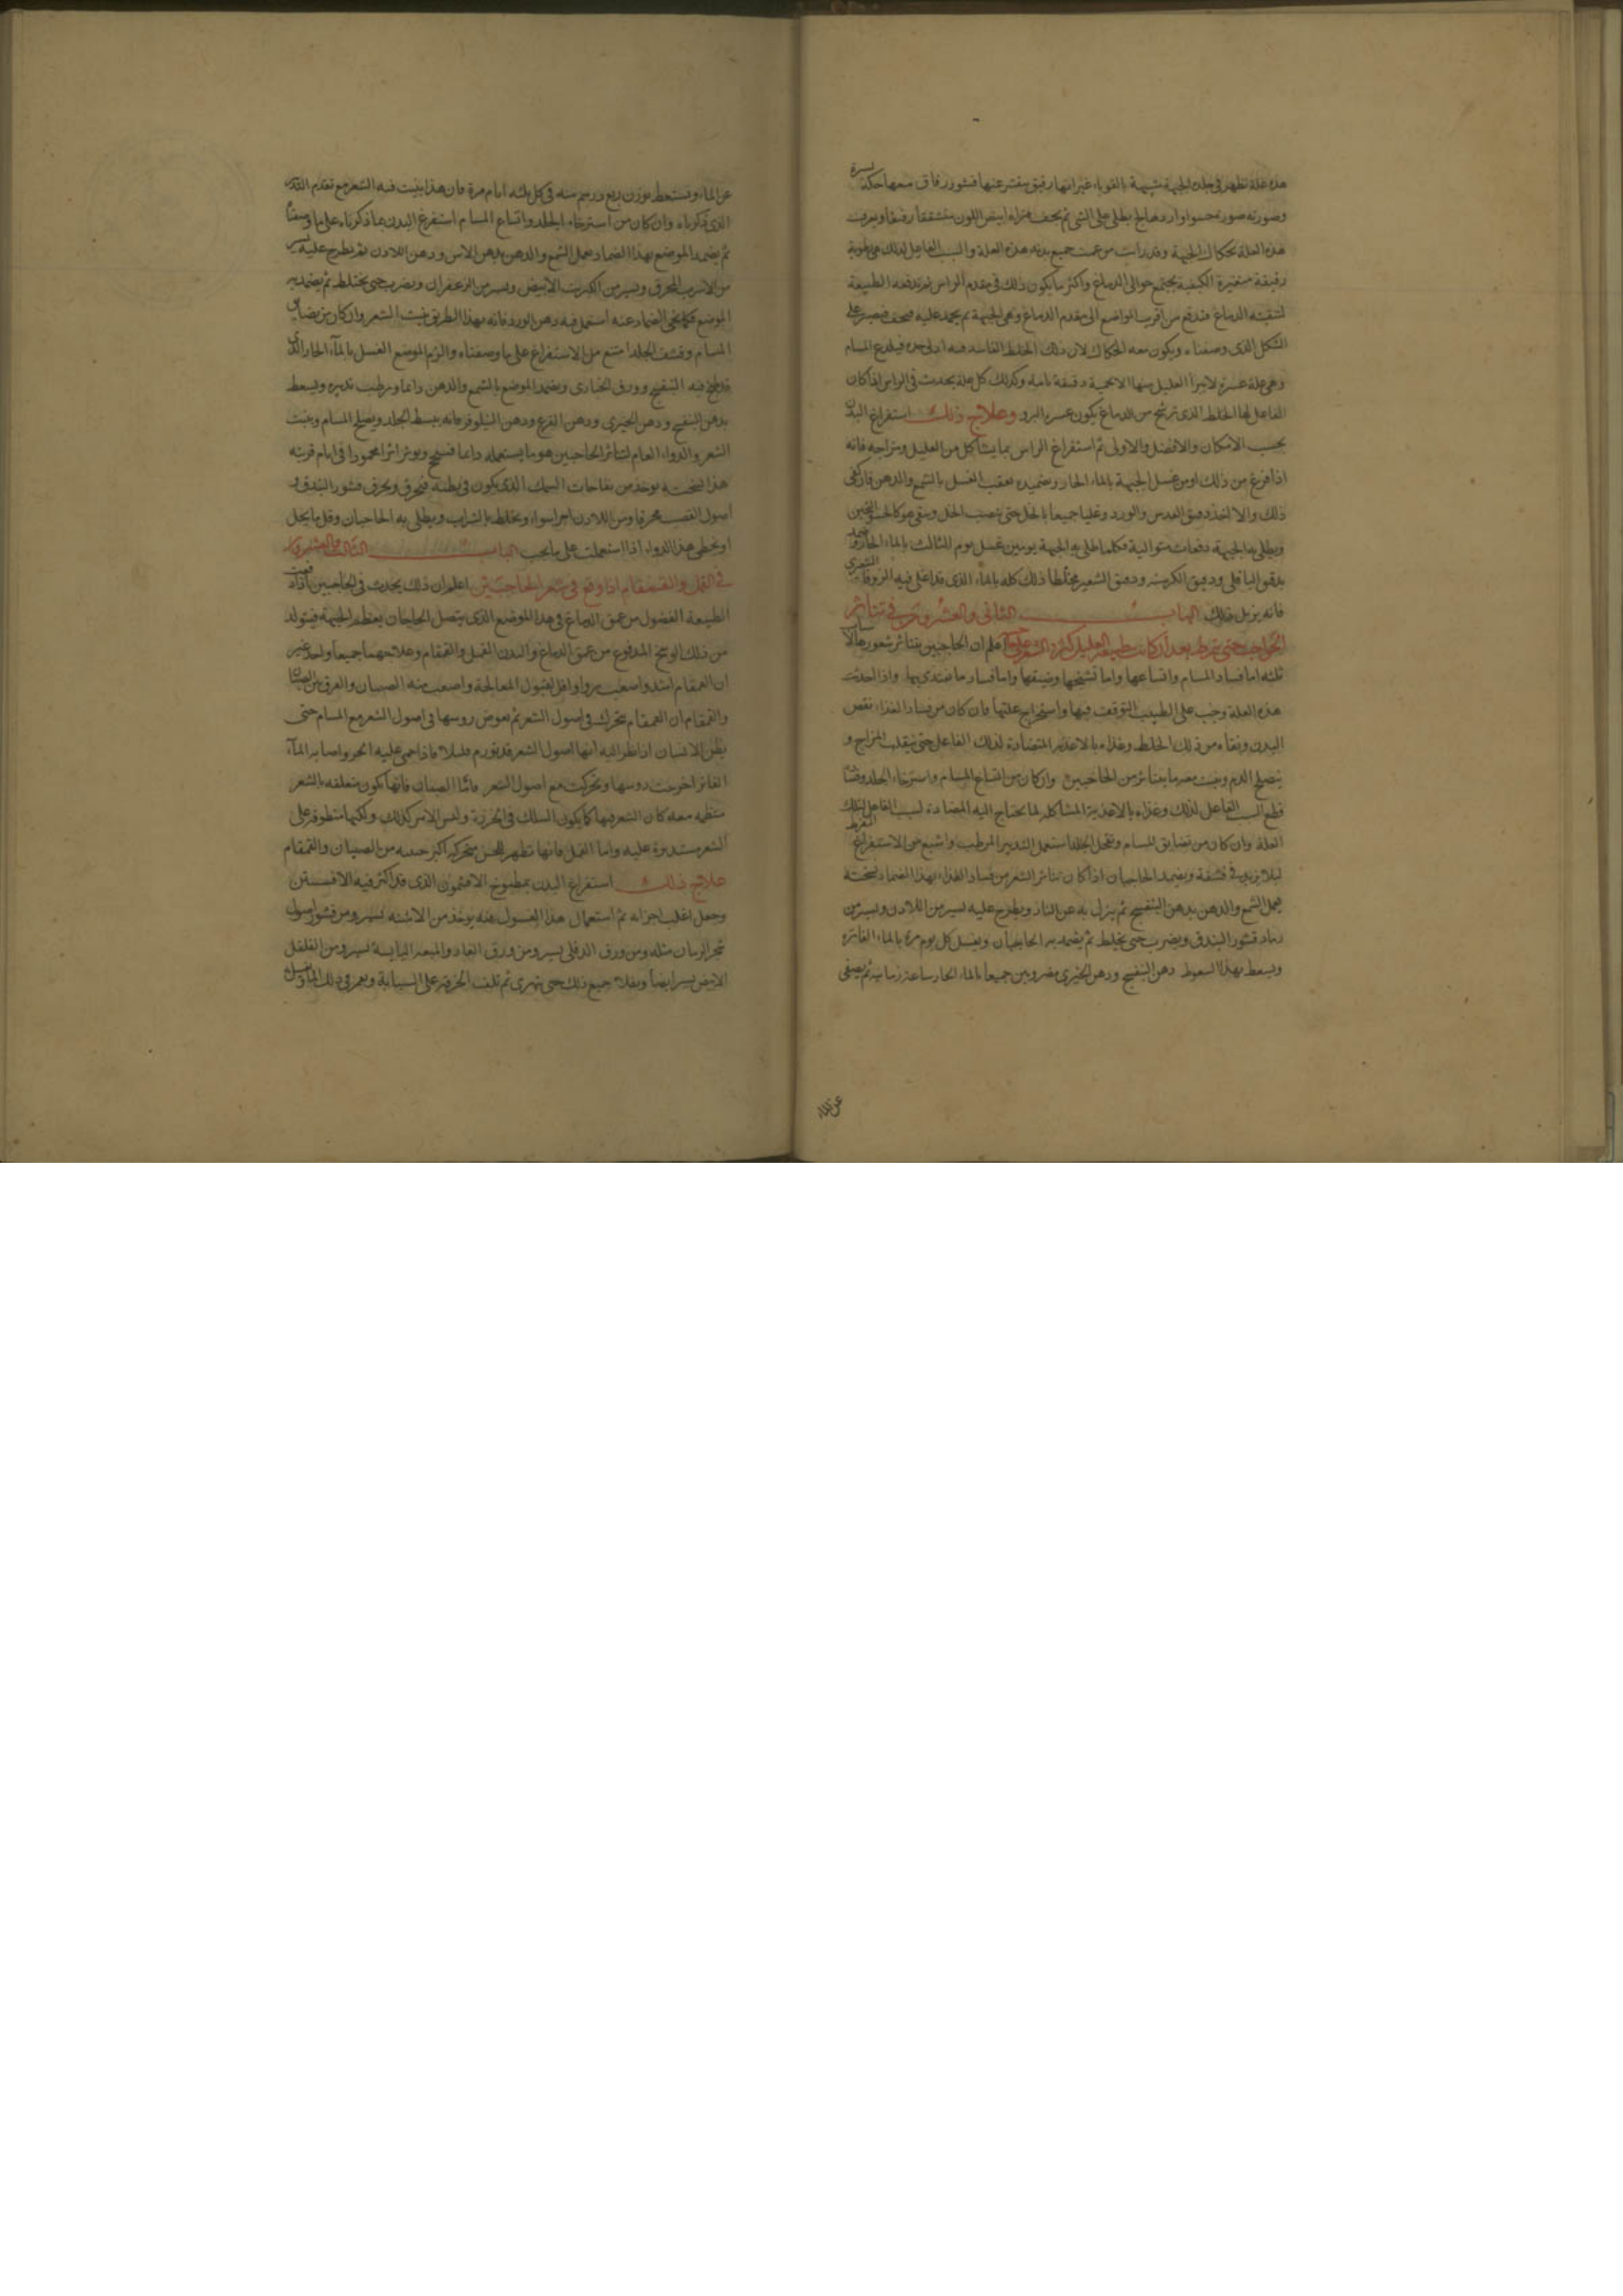 هذه علة تظهر فى جلد الجبهة شبيهة بالقوباء غير انها رقيق يتقشر عنها قشور رقاق معها حكة يسيرة
وصورته صورة محسوا وارد هالج يطلى على الشى ثم يجف فتراه ابيض اللون متشققا رقيقا ويعرف
هذه العلة بحكاك الجبهة وقد رأيت من عمت جميع بدنه هذه العلة والسبب الفاعل لذلك هى رطوبة
رقيقة متغيرة الكيفية تجتمع حوالى الدماغ واكثر ما يكون ذلك فى مقدم الراس ثم تدفعه الطبيعة
لتنقية الدماغ فتدفع من اقرب المواضع الى مقدم الدماغ وهى الجبهة ثم يجمد عليه فيجف فيصير على
الشكل الذى وصفناه ويكون معه الحكاك لان ذلك الخلط الفاسد فيه ادنى حدة فيلدع المسام
وهى علة عسرة لا يبرأ العليل منها الا بحمية دقيقة تامة وكذلك كل علة يحدث فى الراس اذا كان
الفاعل لها الخلط الذى ترشح من الدماغ يكون عسر البرو وعلاج ذلك استفراغ البدن
بحسب الامكان والافضل والاولى ثم استفراغ الراس بما يشاكل من العليل ومزاجه فانه
اذا فرغ من ذلك اومر بغسل الجبهة بالماء الحار وتضميده بعقب الغسل بالشمع والدهن فان كفى
ذلك والا اخذ دقيق العدس والورد وغليا جميعا بالخل حتى ينصب الخل ويبقى هو كالحسو الثخين
ويطلى به الجبهة دفعات متوالية فكلما طلى به الجبهة يومين غسل يوم الثالث بالماء الحار وضمد
بدقيق الباقلى ودقيق الكرسنه ودقيق الشعير مختلطا ذلك كله بالماء الذى قد اغلى فيه الزوفا
فانه يزيل ذلك الباب الثانى والعشرون فى تناثر
الحواجب حتى تمرط بعد ان كانت طبيعة العليل كثرة الشعر عليه اعلم ان الحاجبين يتناثر شعورهما لاسباب
ثلثه اما فساد المسام واتساعها واما تشنجها وضيقها واما فساد ما تغتدى بها واذا حدثت
هذه العلة وجب على الطبيب التوقف فيها واستخراج علتها فان كان من فساد الغذاء نقص
البدن ونقاه من ذلك الخلط وغذاه بالاغذية المتضادة لذلك الفاعل حتى ينقلب المزاج و
يتصلح الدم وينبت معه ما يتناثر من الحاجبين وان كان من اتساع المسام واسترخاء الجلد
قطع السبب الفاعل لذلك وغذاه بالاغذية المشاكله لما يحتاج اليه المضادة لسبب الفاعل لتلك
العلة وان كان من تضايق المسام وتقحل الجلد استعمل التدبير المرطب وامتنع من الاستفراغ المفرط
ليلا يزيد فى قشفة ويضمد الحاجبان اذا كان تناثر الشعر من فساد الغذاء بهذا الضماد نسخته
يعمل الشمع والدهن بدهن البنفسج ثم ينزل به عن النار ويطرح عليه يسير من اللادن ويسير من
رماد قشور البندق ويضرب حتى يختلط ثم يضمد به الحاجبان ويغسل كل يوم مرة بالماء الفاتر
ويسعط بهذا السعوط دهن البنفسج ودهن الخيرى مضروبين جميعا بالماء الحار ساعة زمانية ثم يصفى
عن الماء
عن الماء ويستعط بوزن ربع درهم منه فى كل ثلثه ايام مرة فان هذا ينبت فيه الشعر مع تقدم التدبير
الذى ذكرناه وان كان من استرخاء الجلد واتساع المسام استفرغ البدن بما ذكرناه على ما وصفنا
ثم يضمد الموضع بهذا الضماد يعمل الشمع والدهن بدهن الاس ودهن اللادن ثم يطرح عليه يسير
من الاسرب المحرق ويسير من الكبريت الابيض ويسير من الزعفران ويضرب حتى يختلط ثم يضمد به
الموضع فكلما نحى الضماد عنه استعمل فيه دهن الورد فانه بهذا الطريق ينبت الشعر وان كان من تضايق
المسام وقشف الجلد امتنع من الاستفراغ على ما وصفناه والزم الموضع الغسل بالماء الحار الذى
قد طبخ فيه البنفسج وورق الخبازى وضمد الموضع بالشمع والدهن دائما ويرطب تدبيره ويسعط
بدهن البنفسج ودهن الخيرى ودهن القرع ودهن النيلوفر فانه يبسط الجلد ويصلح المسام وينبت
الشعر والدواء العام لتناثر الحاجبين هو ما يستعمله دائما فينجح ويوثر اثرا محمودا فى ايام قريبه
هذا نسخته يوخذ من نفاخات السمك الذى يكون فى بطنه فيحرق ويحرق قشور البندق و
اصول القصب محرقا ومن اللادن اجزا سواء ويخلط بالشراب ويطلى به الحاجبان وقل ما يخل
او يخطى هذا الدواء اذا استعملت على ما يجب الباب الثالث والعشرون
فى القمل والقمقام اذا وقع فى شعر الحاجبين اعلم ان ذلك يحدث فى الحاجبين اذا دفعت
الطبيعة الفضول من عمق الدماغ فى هذا الموضع الذى يتصل الحاجبان بعظم الجبهة فيتولد
من ذلك الوسخ المدفوع من عمق الدماغ والبدن القمل والقمقام وعلاجهما جميعا واحد غير
ان القمقام اشد واصعب بروا واقل لقبول المعالجة واصعب منه الصيبان والفرق بين الصيبان
والقمقام ان القمقام يتحرك فى اصول الشعر ثم يغوص روسها فى اصول الشعر مع المسام حتى
يظن الانسان اذا نظر اليه انها اصول الشعر قد تورم قليلا فاذا حمى عليه الحر واصابه الماء
الفاتر اخرجت روسها وتحركت مع اصول الشعر فاما الصيبان فانها تكون متعلقه بالشعر
منتظمه معه كان الشعر فيها كما يكون السلك فى الخرزة وليس الامر كذلك ولكنها متطوقة على
الشعر مستديرة عليه واما القمل فانها تظهر للحس متحركه اكبر جسمه من الصيبان والقمقام
علاج ذلك استفراغ البدن بمطبوخ الافثمون الذى قد اكثر فيه الافسنتين
وجعل اغلب اجزائه ثم استعمال هذا الغسول صفته يوخذ من الاشنه يسير ومن قشور اصول
شجر الرمان مثله ومن ورق الدفلى يسير ومن ورق الغار والميعه اليابسة يسير ومن الفلفل
الابيض يسير ايضا ويغلا جميع ذلك حتى يتهرى ثم تلف الخرقه على السبابة ويغمر فى ذلك الماء ويغسل